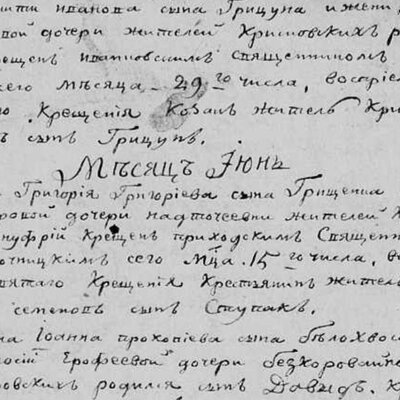 ити иванова сына Грицуна и жени
вой дочери жителей Криповскихъ р
рещенъ ивановскимъ священникомъ
сего мѣсяца 29го числа, воспріе
го Крещенія Козакъ житель Кри
ъ сынъ Грицунъ.
Мѣсяцъ Іюнь
Григорія Григоріева сына Грищенка
ровой дочери надточеевни жителей К
нуфрій Крещенъ приходскимъ Священн
очницкимъ сего Мца 15го числа, во
святаго Крещенія Крестянинъ жител
семеновъ сынъ Ступакъ.
на Іоанна прокопіева сына бѣлохвос
осіи Ерофеевой дочери безкоровайно
ровскихъ родился сынъ Давидъ. К